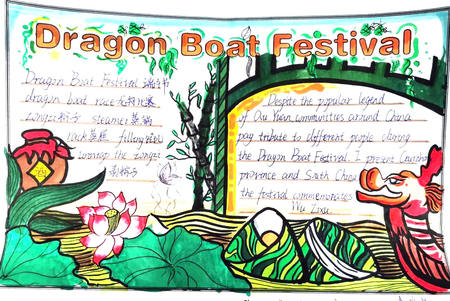 Dragon Boat Festival
Dragon Boat Festival 端午节
dragon boat race 龙舟比赛
Zongzi 粽子 steamer 蒸锅
rack 蒸
unwrap the Zongzi
剥粽子
酒
Despite the popular legend
of Qu Yuan, communities around China
pay tribute to different people during
the Dragon Boat Festival. I present
province and South China
the festival commemorates
Wu Zixu.